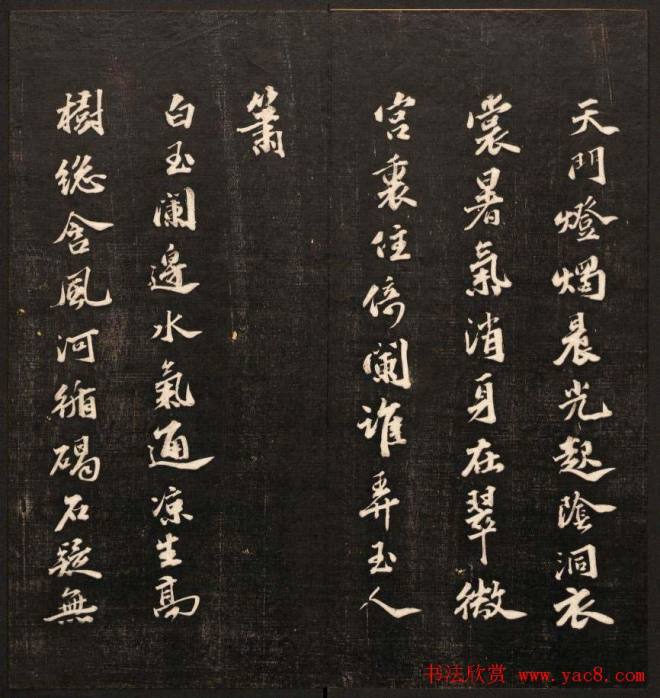 天門燈燭晨光起陰洞衣
裳暑氣消身在翠微
宮裏住倚闌誰弄玉人
簫
白玉闌邊水氣通涼生高
樹總含風河循碣石疑無
书法欣赏 www.yac8.com